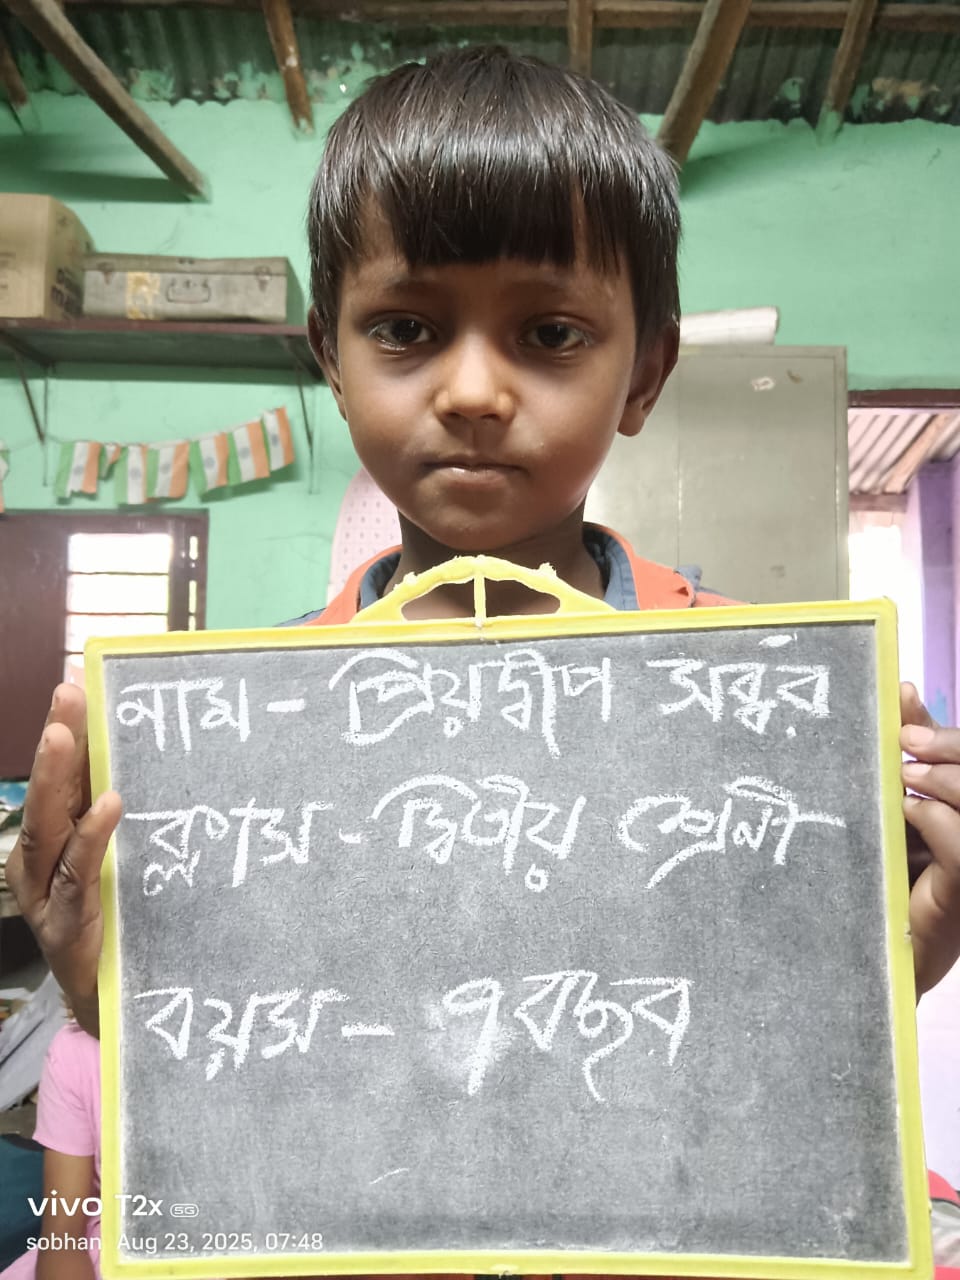 নাম - প্রিয়দ্বীপ সর্দ্দার
ক্লাস - দ্বিতীয় শ্রেনী
বয়স - ৭ বছর
vivo T2x 5G
sobhan Aug 23, 2025, 07:48